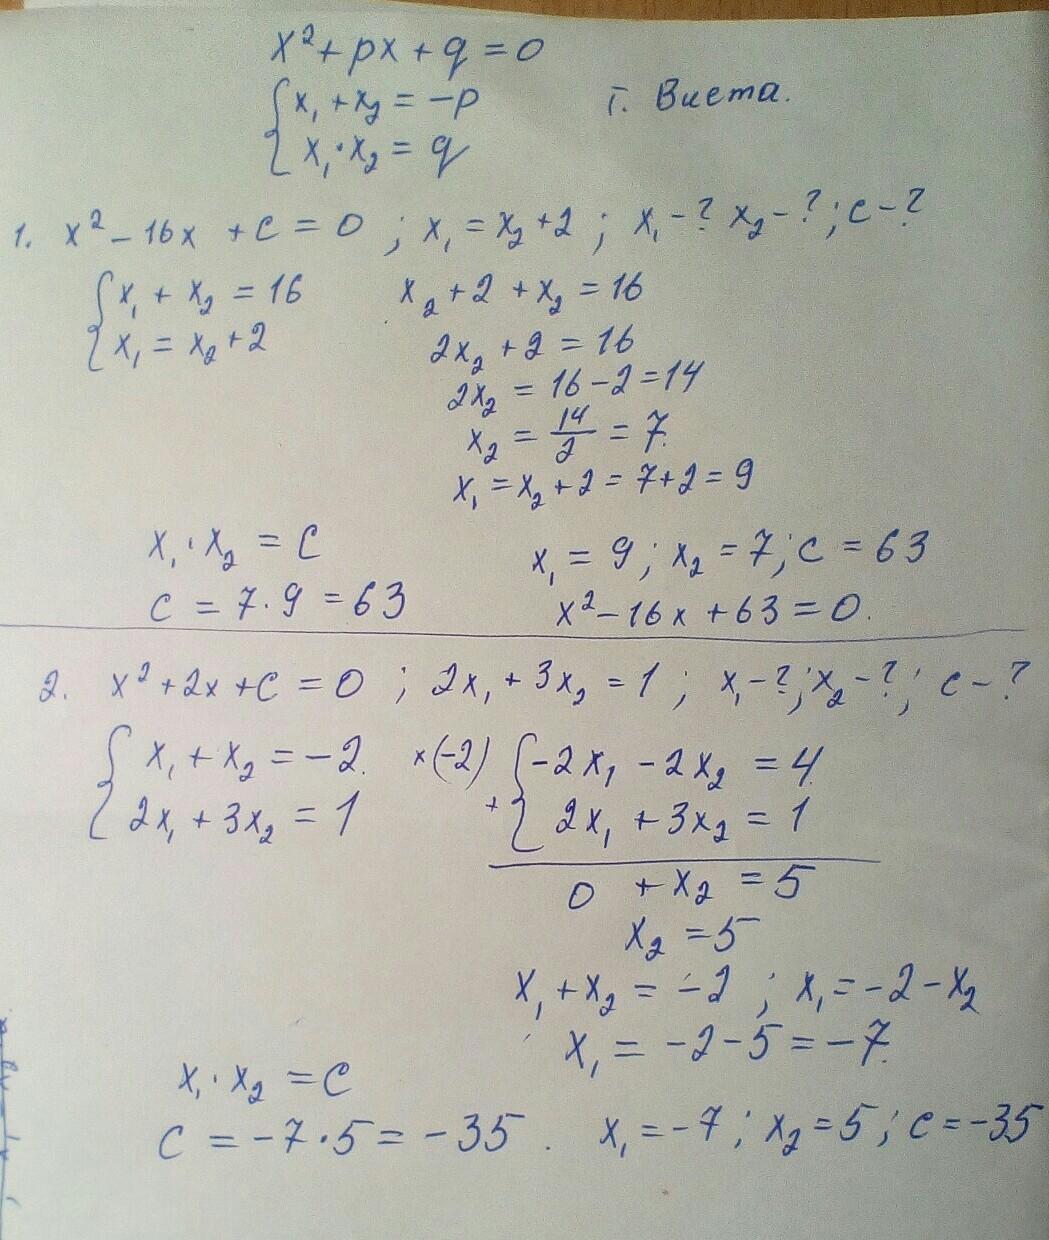 x² + px + q = 0
{ x₁ + x₂ = -p
т. Виета.
{ x₁ · x₂ = q
1. x² - 16x + c = 0 ; x₁ = x₂ + 2 ; x₁ - ? x₂ - ? ; c - ?
{ x₁ + x₂ = 16    x₂ + 2 + x₂ = 16
{ x₁ = x₂ + 2    2x₂ + 2 = 16
2x₂ = 16 - 2 = 14
x₂ = 14/2 = 7.
x₁ = x₂ + 2 = 7 + 2 = 9
x₁ · x₂ = c    x₁ = 9 ; x₂ = 7 ; c = 63
c = 7 · 9 = 63    x² - 16x + 63 = 0.
2. x² + 2x + c = 0 ; 2x₁ + 3x₂ = 1 ; x₁ - ? ; x₂ - ? ; c - ?
{ x₁ + x₂ = -2. ×(-2) { -2x₁ - 2x₂ = 4
{ 2x₁ + 3x₂ = 1    + { 2x₁ + 3x₂ = 1
0 + x₂ = 5
x₂ = 5
x₁ + x₂ = -2 ; x₁ = -2 - x₂
x₁ = -2 - 5 = -7.
x₁ · x₂ = c
c = -7 · 5 = -35 . x₁ = -7 ; x₂ = 5 ; c = -35